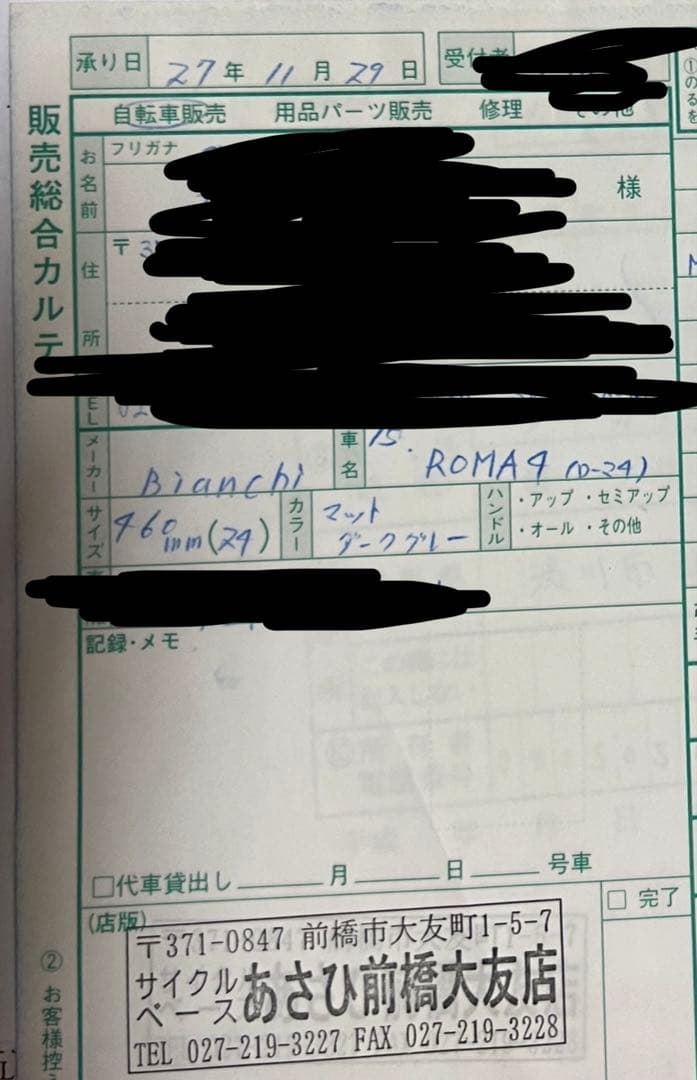 承り日 27年 11月 29日 受付者
自転車販売 用品パーツ販売 修理 その他
販売総合カルテ
お名前 フリガナ
様
住所 〒3
TEL 02
メーカー Bianchi 車名 15. ROMA4 (D-24)
サイズ 460mm(24) カラー マットダークグレー ハンドル ・アップ ・セミアップ ・オール ・その他
記録・メモ
□代車貸出し 月 日 号車
(店版) □ 完了
〒371-0847 前橋市大友町1-5-7
サイクルベース あさひ前橋大友店
TEL 027-219-3227 FAX 027-219-3228
② お客様控